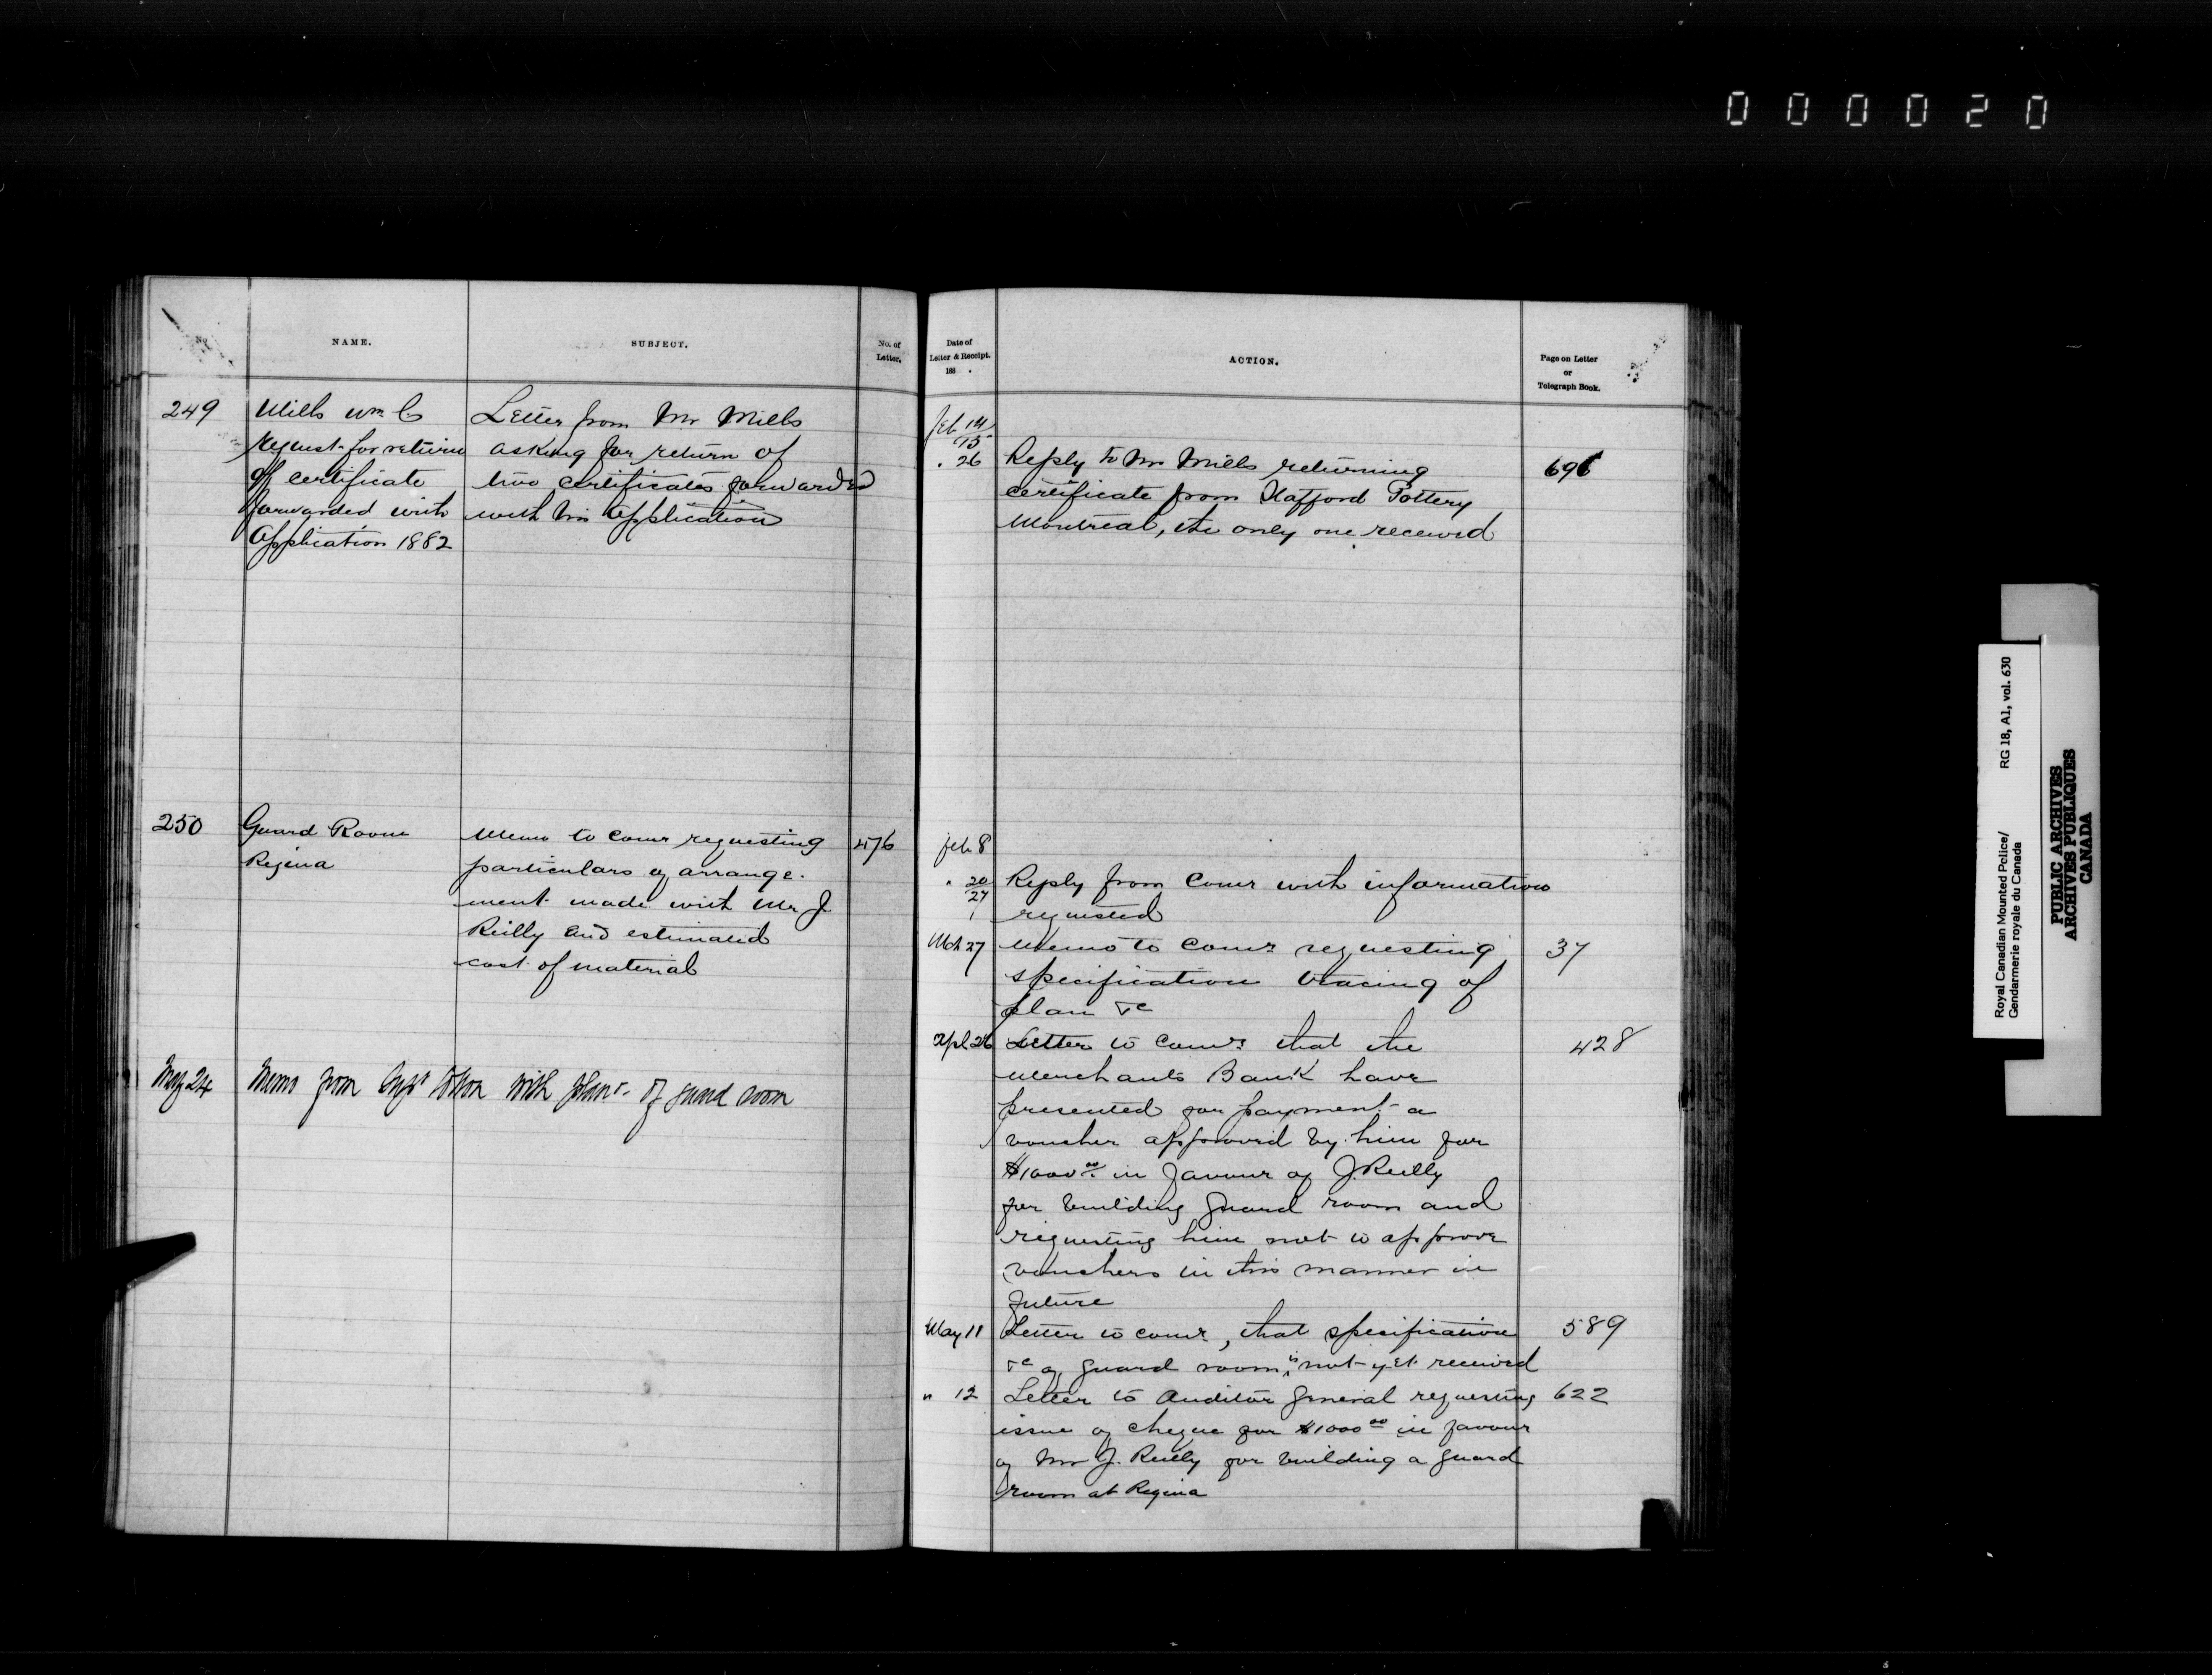 000020
No
NAME.
SUBJECT.
No. of
Letter.
249
Mills Wm C
request for return
of certificate
forwarded with
Application 1882
Letter from Mr Mills
asking for return of
two certificates forwarded
with his application
250
Guard Room
Regina
Memo to Comr requesting
particulars of arrange-
ment made with Mr J
Reilly and estimated
cost of material
476
May 24
Memo from Supt with plan of guard room
Date of
Letter & Receipt.
188 .
ACTION.
Page on Letter
or
Telegraph Book.
Feb 14/
15
" 26
Reply to Mr Mills returning
certificate from Stafford Pottery
Montreal, the only one received
696
Feb 8
" 20
27
Reply from Comr with information
requested
Mch 27
Memo to Comr requesting
specification tracing of
plan &c
37
Apl 26
Letter to Comr that the
Merchants Bank have
presented for payment a
voucher approved by him for
$1000 00 in favour of J. Reilly
for building guard room and
requesting him not to approve
vouchers in this manner in
future
428
May 11
Letter to Comr, that specification
&c of guard room is not yet received
589
" 12
Letter to Auditor General requesting
issue of cheque for $1000 00 in favour
of Mr J. Reilly for building a guard
room at Regina
622
Royal Canadian Mounted Police/
Gendarmerie royale du Canada
RG 18, A1, vol. 630
PUBLIC ARCHIVES
ARCHIVES PUBLIQUES
CANADA